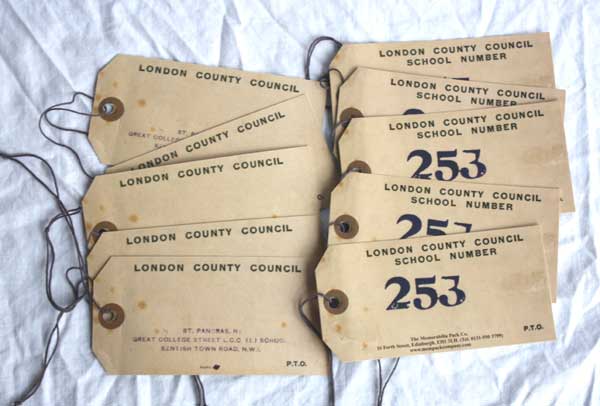 LONDON COUNTY COUNCIL
ST. PA
GREAT COLLEGE
KENTISH
LONDON COUNTY COUNCIL
LONDON COUNTY COUNCIL
LONDON COUNTY COUNCIL
LONDON COUNTY COUNCIL
ST. PANCRAS, N.
GREAT COLLEGE STREET L.C.C. (L) SCHOOL
KENTISH TOWN ROAD, N.W.1.
P.T.O.
LONDON COUNTY COUNCIL
SCHOOL NUMBER
LONDON COUNTY COUNCIL
SCHOOL NUMBER
LONDON COUNTY COUNCIL
SCHOOL NUMBER
253
LONDON COUNTY COUNCIL
SCHOOL NUMBER
253
LONDON COUNTY COUNCIL
SCHOOL NUMBER
253
The Memorabilia Pack Co.
16 Forth Street, Edinburgh, EH1 3LH. (Tel. 0131-558 3799)
www.mempackcompany.com
P.T.O.